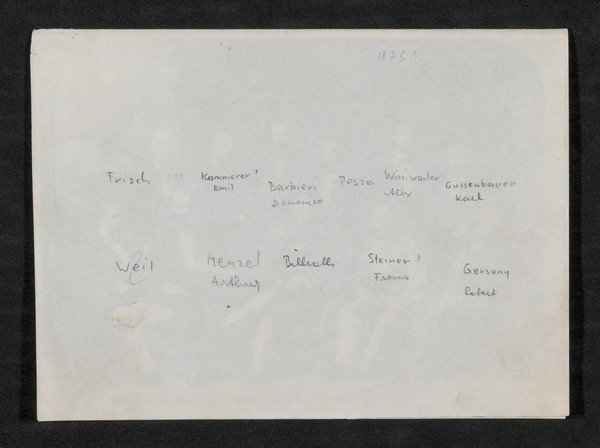 1875?
Frisch Kammerer? Barbieri Winiwarter Gussenbauer
Emil Domenico Alex Karl
Weil Menzel Billroth Steiner? Gersuny
Arthur Franz Robert